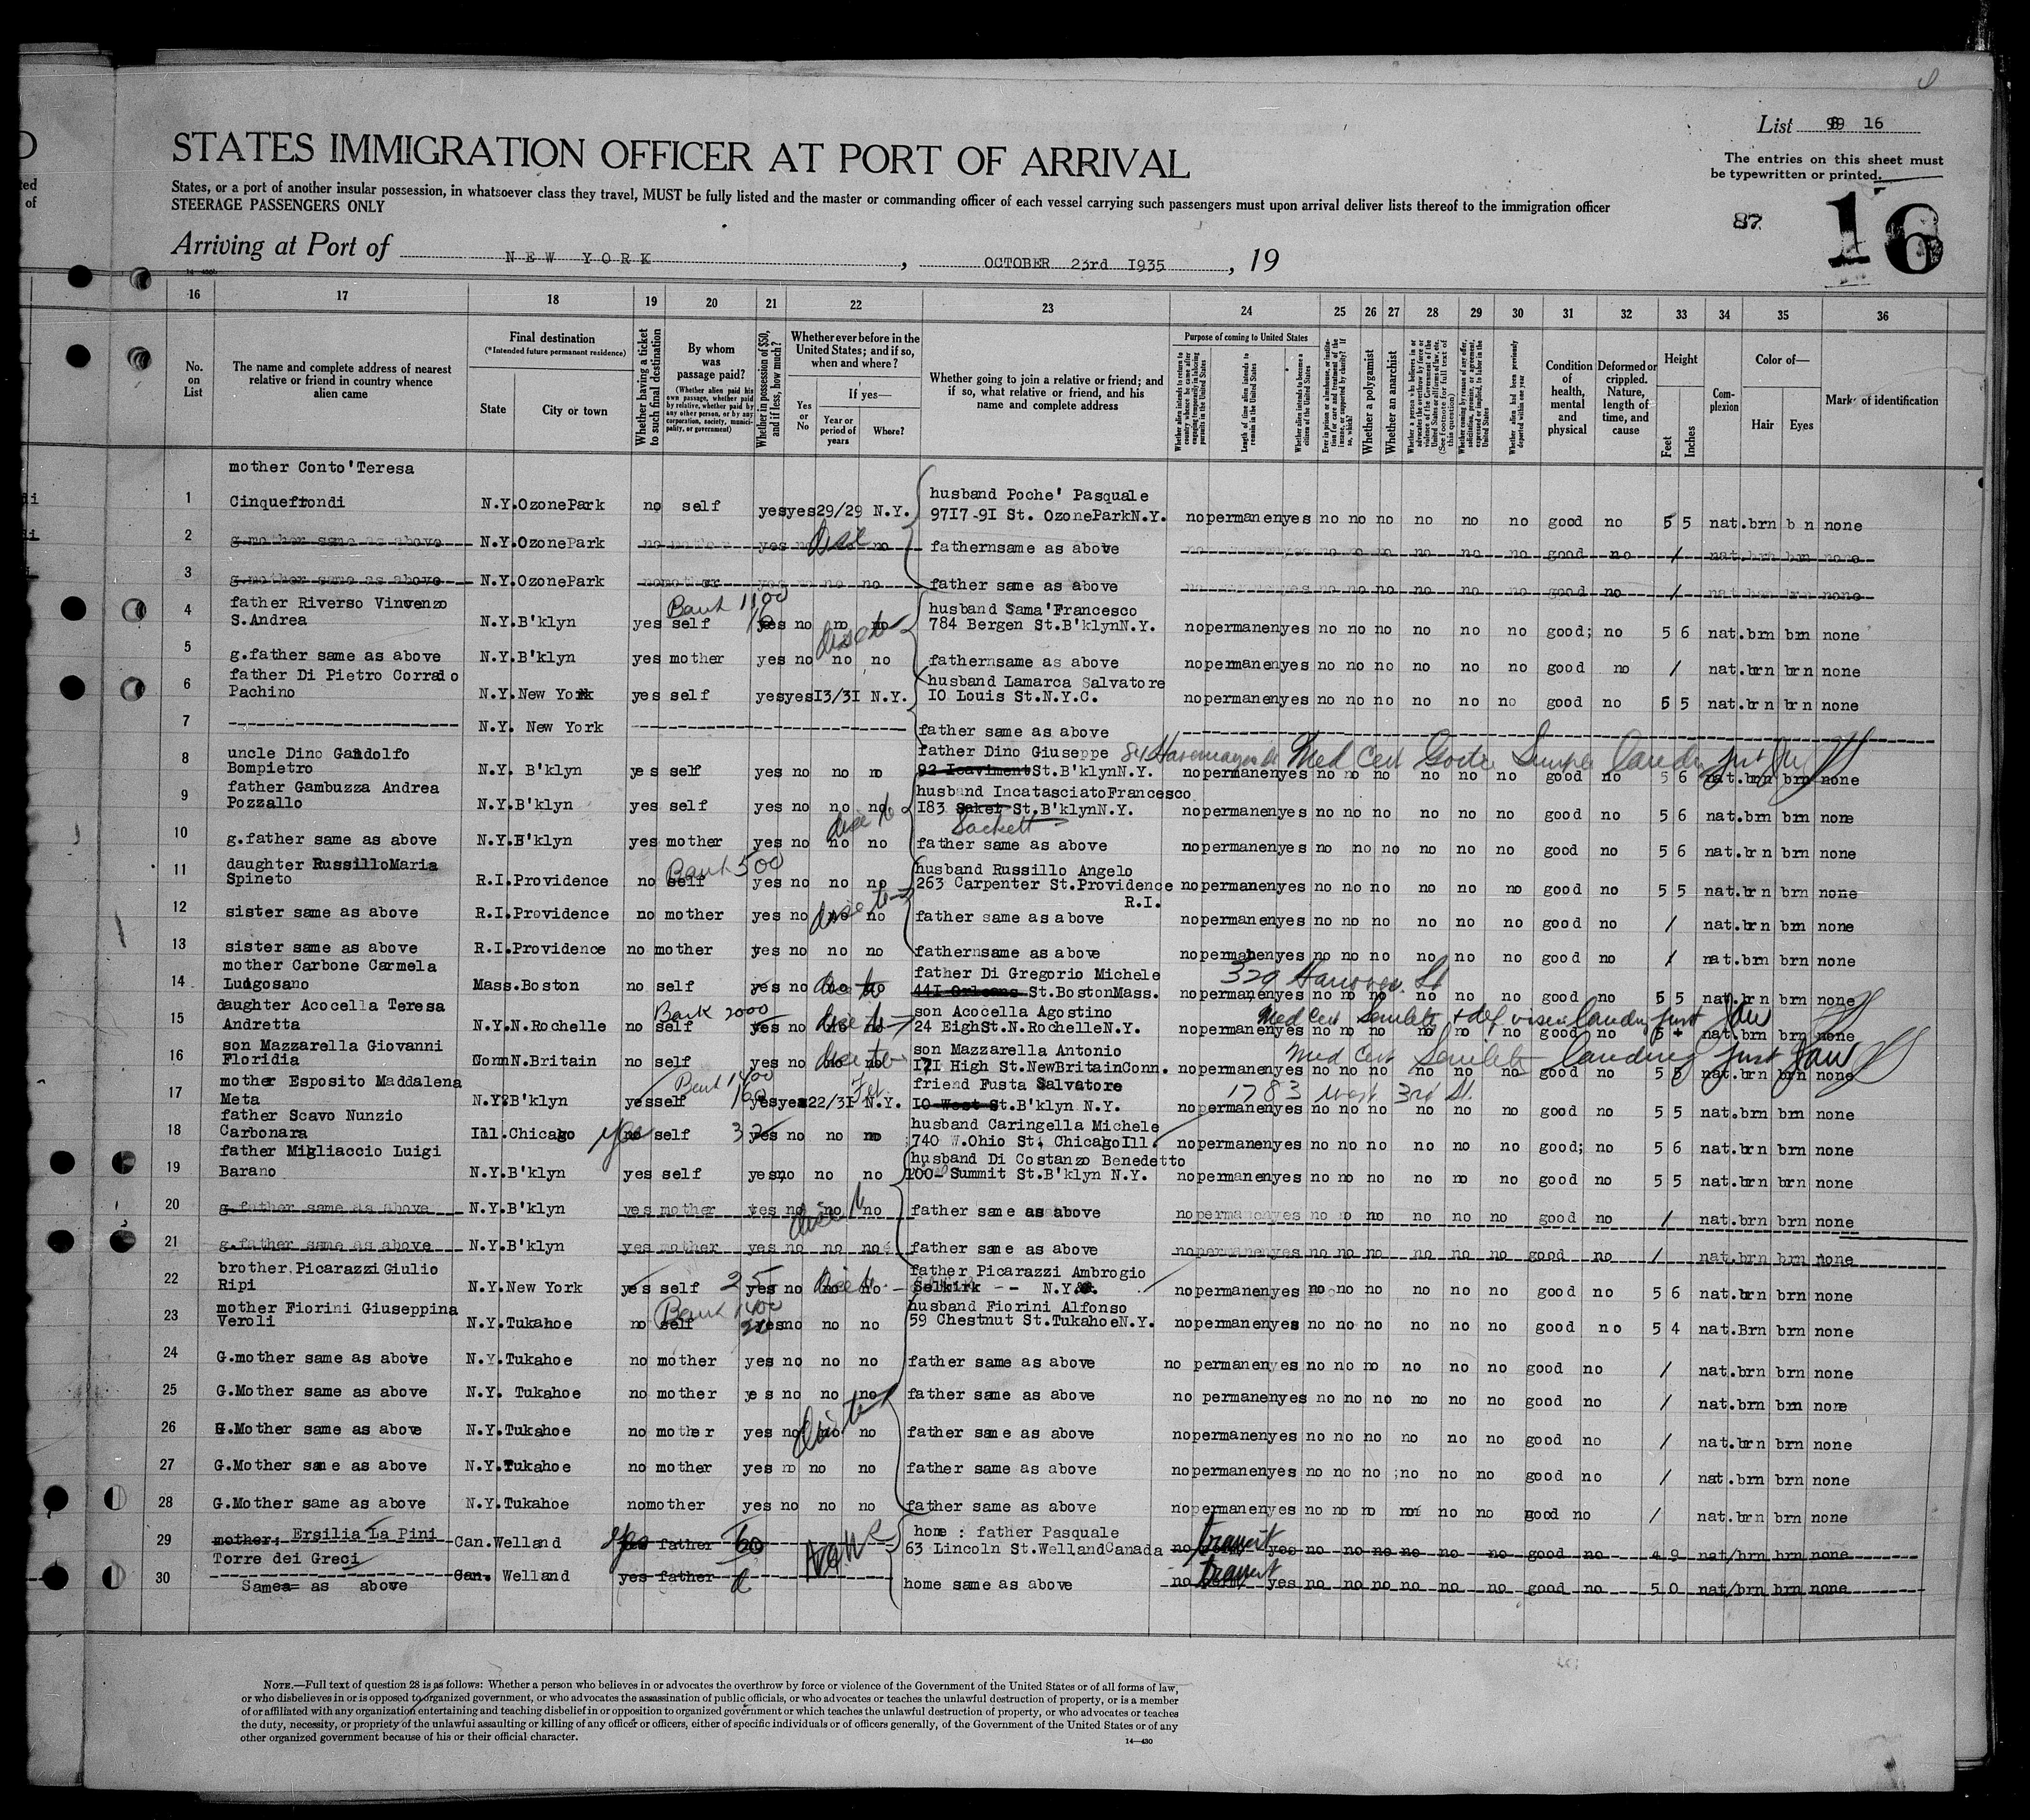 List 99 16
STATES IMMIGRATION OFFICER AT PORT OF ARRIVAL
The entries on this sheet must
be typewritten or printed.
States, or a port of another insular possession, in whatsoever class they travel, MUST be fully listed and the master or commanding officer of each vessel carrying such passengers must upon arrival deliver lists thereof to the immigration officer
STEERAGE PASSENGERS ONLY
87
16
Arriving at Port of NEW YORK, OCTOBER 23rd 1935, 19
16 17 18 19 20 21 22 23 24 25 26 27 28 29 30 31 32 33 34 35 36
No. on List
The name and complete address of nearest relative or friend in country whence alien came
Final destination
(*Intended future permanent residence)
State
City or town
Whether having a ticket to such final destination
By whom was passage paid?
(Whether alien paid his own passage, whether paid by relative, whether paid by any other person, or by any corporation, society, municipality, or government)
Whether in possession of $50, and if less, how much?
Whether ever before in the United States; and if so, when and where?
Yes or No
If yes—
Year or period of years
Where?
Whether going to join a relative or friend; and if so, what relative or friend, and his name and complete address
Purpose of coming to United States
Whether alien intends to return to country whence he came after engaging temporarily in laboring pursuits in the United States
Length of time alien intends to remain in the United States
Whether alien intends to become a citizen of the United States
Ever in prison or almshouse, or institution for care and treatment of the insane, or supported by charity? If so, which?
Whether a polygamist
Whether an anarchist
Whether a person who believes in or advocates the overthrow by force or violence of the Government of the United States or all forms of law, etc. (See footnote for full text of this question)
Whether coming by reason of any offer, solicitation, promise, or agreement, expressed or implied, to labor in the United States
Whether alien had been previously deported within one year
Condition of health, mental and physical
Deformed or crippled. Nature, length of time, and cause
Height
Feet
Inches
Complexion
Color of—
Hair
Eyes
Marks of identification
mother Conto'Teresa husband Poche' Pasquale
1 Cinquefrondi N.Y.OzonePark no self yes yes 29/29 N.Y. 9717-91 St. OzoneParkN.Y. no permanen yes no no no no no no good no 5 5 nat. brn b n none
2 g.mother same as above N.Y.OzonePark no mother yes no no fathernsame as above no yes no no no no no no good no / nat. brn brn none
3 g.mother same as above N.Y.OzonePark no mother yes no no no father same as above no yes no no no no no no good no / nat. brn brn none
father Riverso Vincenzo Bank 1100 husband Sama'Francesco
4 S.Andrea N.Y.B'klyn yes self yes no no no 784 Bergen St.B'klynN.Y. no permanen yes no no no no no no good; no 5 6 nat. brn brn none
5 g.father same as above N.Y.B'klyn yes mother yes no no no fathernsame as above no permanen yes no no no no no no good no / nat. brn brn none
father Di Pietro Corrado husband Lamarca Salvatore
6 Pachino N.Y.New York yes self yes yes 13/31 N.Y. 10 Louis St.N.Y.C. no permanen yes no no no no no no good no 5 5 nat. brn brn none
7 N.Y. New York father same as above
uncle Dino Gandolfo father Dino Giuseppe Med Cert
8 Bompietro N.Y. B'klyn yes self yes no no no 92 St.B'klynN.Y. no permanen yes no no no no no no good no 5 6 nat. brn brn none
father Gambuzza Andrea husband IncatasciatoFrancesco
9 Pozzallo N.Y.B'klyn yes self yes no no no 183 St.B'klynN.Y. no permanen yes no no no no no no good no 5 6 nat. brn brn none
Sackett
10 g.father same as above N.Y.B'klyn yes mother yes no no no father same as above no permanen yes no no no no no no good no 5 6 nat. brn brn none
daughter RussilloMaria Bank 500 husband Russillo Angelo
11 Spineto R.I.Providence no self yes no no no 263 Carpenter St.Providence no permanen yes no no no no no no good no 5 5 nat. brn brn none
R.I.
12 sister same as above R.I.Providence no mother yes no no no father same as above no permanen yes no no no no no no good no / nat. brn brn none
13 sister same as above R.I.Providence no mother yes no no no fathernsame as above no permanen yes no no no no no no good no / nat. brn brn none
mother Carbone Carmela father Di Gregorio Michele 329 Hanover St
14 Luogosano Mass.Boston no self yes no no no 441 Orleans St.BostonMass. no permanen yes no no no no no no good no 5 5 nat. brn brn none
daughter Acocella Teresa Bank 2000 son Acocella Agostino Med Cert
15 Andretta N.Y.N.Rochelle no self yes no no no 24 EighSt.N.RochelleN.Y. no permanen yes no no no no no no good no 5 4 nat. brn brn none
son Mazzarella Giovanni son Mazzarella Antonio Med Cert landing
16 Floridia Conn N.Britain no self yes no no no 171 High St.NewBritainConn. no permanen yes no no no no no no good no 5 5 nat. brn brn none
mother Esposito Maddalena Bank friend Fusta Salvatore 1783 West 3rd St.
17 Meta N.Y.B'klyn yes self yes yes 22/31 N.Y. 10 West St.B'klyn N.Y. no permanen yes no no no no no no good no 5 5 nat. brn brn none
father Scavo Nunzio husband Caringella Michele
18 Carbonara Ill.Chicago yes self 32 yes no no no 740 W.Ohio St. ChicagoIll. no permanen yes no no no no no no good; no 5 6 nat. brn brn none
father Migliaccio Luigi husband Di Costanzo Benedetto
19 Barano N.Y.B'klyn yes self yes no no no 100 Summit St.B'klyn N.Y. no permanen yes no no no no no no good no 5 5 nat. brn brn none
20 g.father same as above N.Y.B'klyn yes mother yes no no no father same as above no permanen yes no no no no no no good no / nat. brn brn none
21 g.father same as above N.Y.B'klyn yes mother yes no no no father same as above no permanen yes no no no no no no good no / nat. brn brn none
brother.Picarazzi Giulio father Picarazzi Ambrogio
22 Ripi N.Y.New York yes self 25 yes no no no Selkirk -- N.Y. no permanen yes no no no no no no good no 5 6 nat. brn brn none
mother Fiorini Giuseppina Bank 1400 husband Fiorini Alfonso
23 Veroli N.Y.Tukahoe no self yes no no no 59 Chestnut St.TukahoeN.Y. no permanen yes no no no no no no good no 5 4 nat. Brn brn none
24 G.mother same as above N.Y.Tukahoe no mother yes no no no father same as above no permanen yes no no no no no no good no / nat. brn brn none
25 G.Mother same as above N.Y. Tukahoe no mother yes no no no father same as above no permanen yes no no no no no no good no / nat. brn brn none
26 G.Mother same as above N.Y.Tukahoe no mother yes no no no father same as above no permanen yes no no no no no no good no / nat. brn brn none
27 G.Mother same as above N.Y.Tukahoe no mother yes no no no father same as above no permanen yes no no no no no no good no / nat. brn brn none
28 G.Mother same as above N.Y.Tukahoe no mother yes no no no father same as above no permanen yes no no no no no no good no / nat. brn brn none
mother; Ersilia La Pini home : father Pasquale transit
29 Torre dei Greci Can.Welland yes father 60 63 Lincoln St.WellandCanada no yes no no no no no no good no 4 9 nat/ brn brn none
30 Same as above Can. Welland yes father home same as above no transit yes no no no no no no good no 5 0 nat/ brn brn none
NOTE.—Full text of question 28 is as follows: Whether a person who believes in or advocates the overthrow by force or violence of the Government of the United States or of all forms of law,
or who disbelieves in or is opposed to organized government, or who advocates the assassination of public officials, or who advocates or teaches the unlawful destruction of property, or is a member
of or affiliated with any organization entertaining and teaching disbelief in or opposition to organized government or which teaches the unlawful destruction of property, or who advocates or teaches
the duty, necessity, or propriety of the unlawful assaulting or killing of any officer or officers, either of specific individuals or of officers generally, of the Government of the United States or of any
other organized government because of his or their official character.
14—430